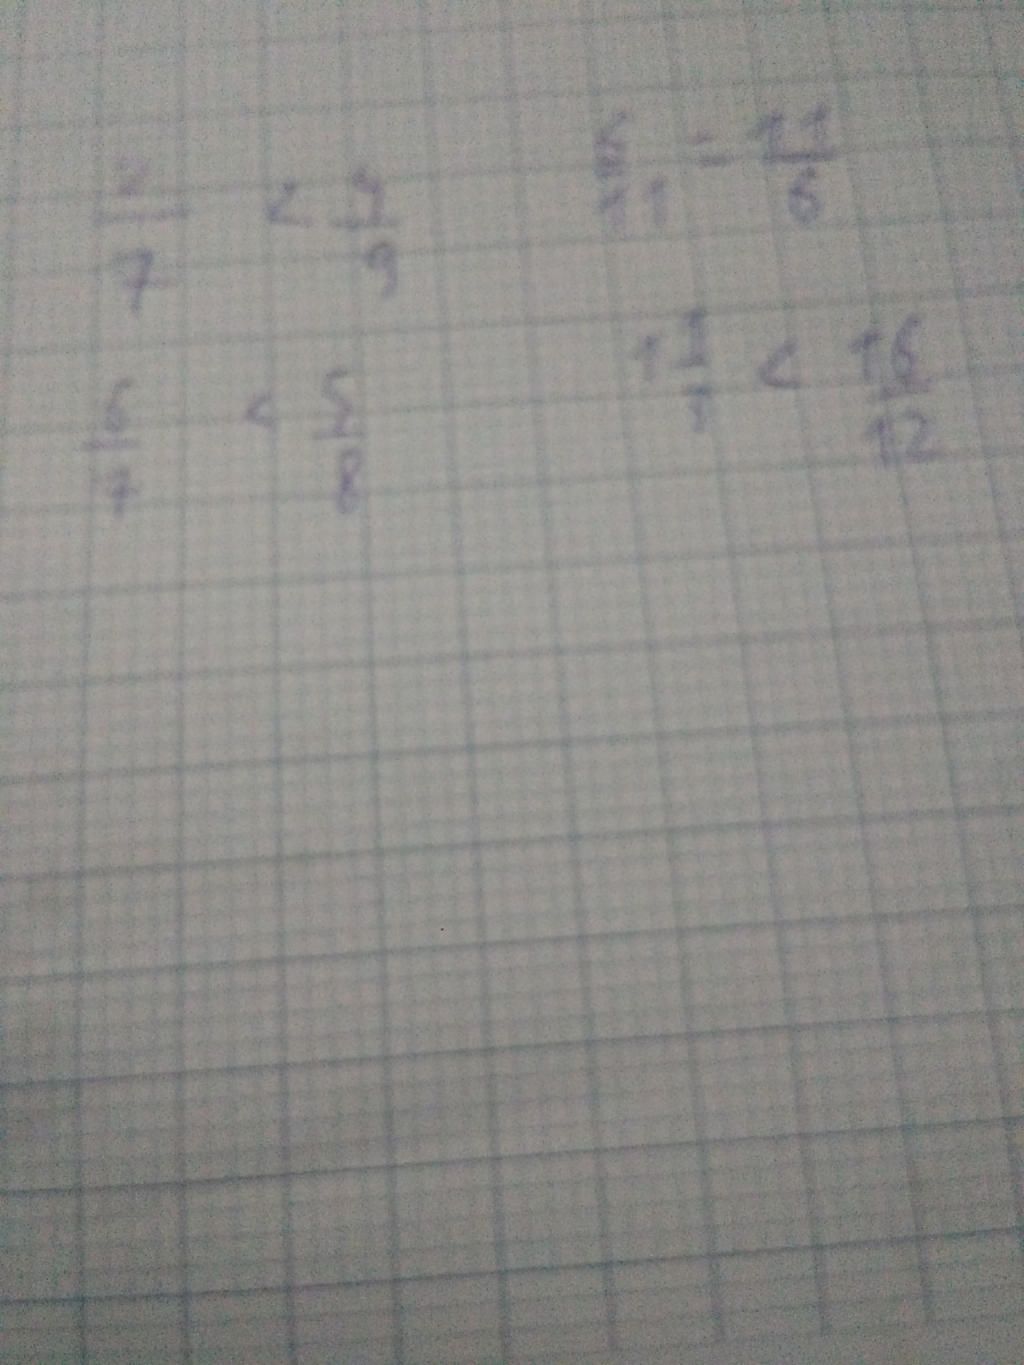 7 < 4/9
6/11 = 11/6
6/7 < 5/8
1 < 16/12